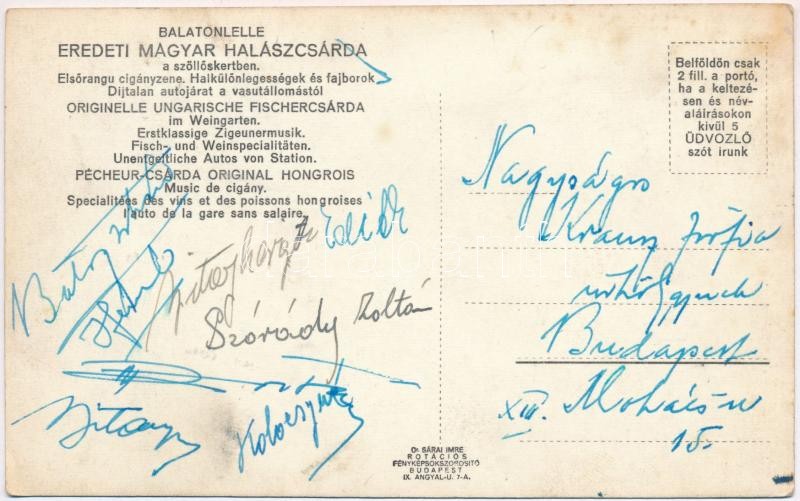 BALATONLELLE
EREDETI MAGYAR HALÁSZCSÁRDA
a szöllőskertben.
Elsőrangu cigányzene. Halkülönlegességek és fajborok
Dijtalan autojárat a vasutállomástól
ORIGINELLE UNGARISCHE FISCHERCSÁRDA
im Weingarten.
Erstklassige Zigeunermusik.
Fisch- und Weinspecialitäten.
Unentgeltliche Autos von Station.
PÉCHEUR-CSÁRDA ORIGINAL HONGROIS
Music de cigány.
Specialitées des vins et des poissons hongroises
l'auto de la gare sans salaire.
Szórády Zoltán
Belföldön csak
2 fill. a portó,
ha a keltezé-
sen és név-
aláirásokon
kivül 5
ÜDVÖZLŐ
szót irunk
Nagyságos
Krausz Zsófia
Budapest
XIII. Mohács-u
15.
Dr SÁRAI IMRE
ROTÁCIÓS
FÉNYKÉPSOKSZOROSITÓ
BUDAPEST
IX. ANGYAL-U. 7-A.